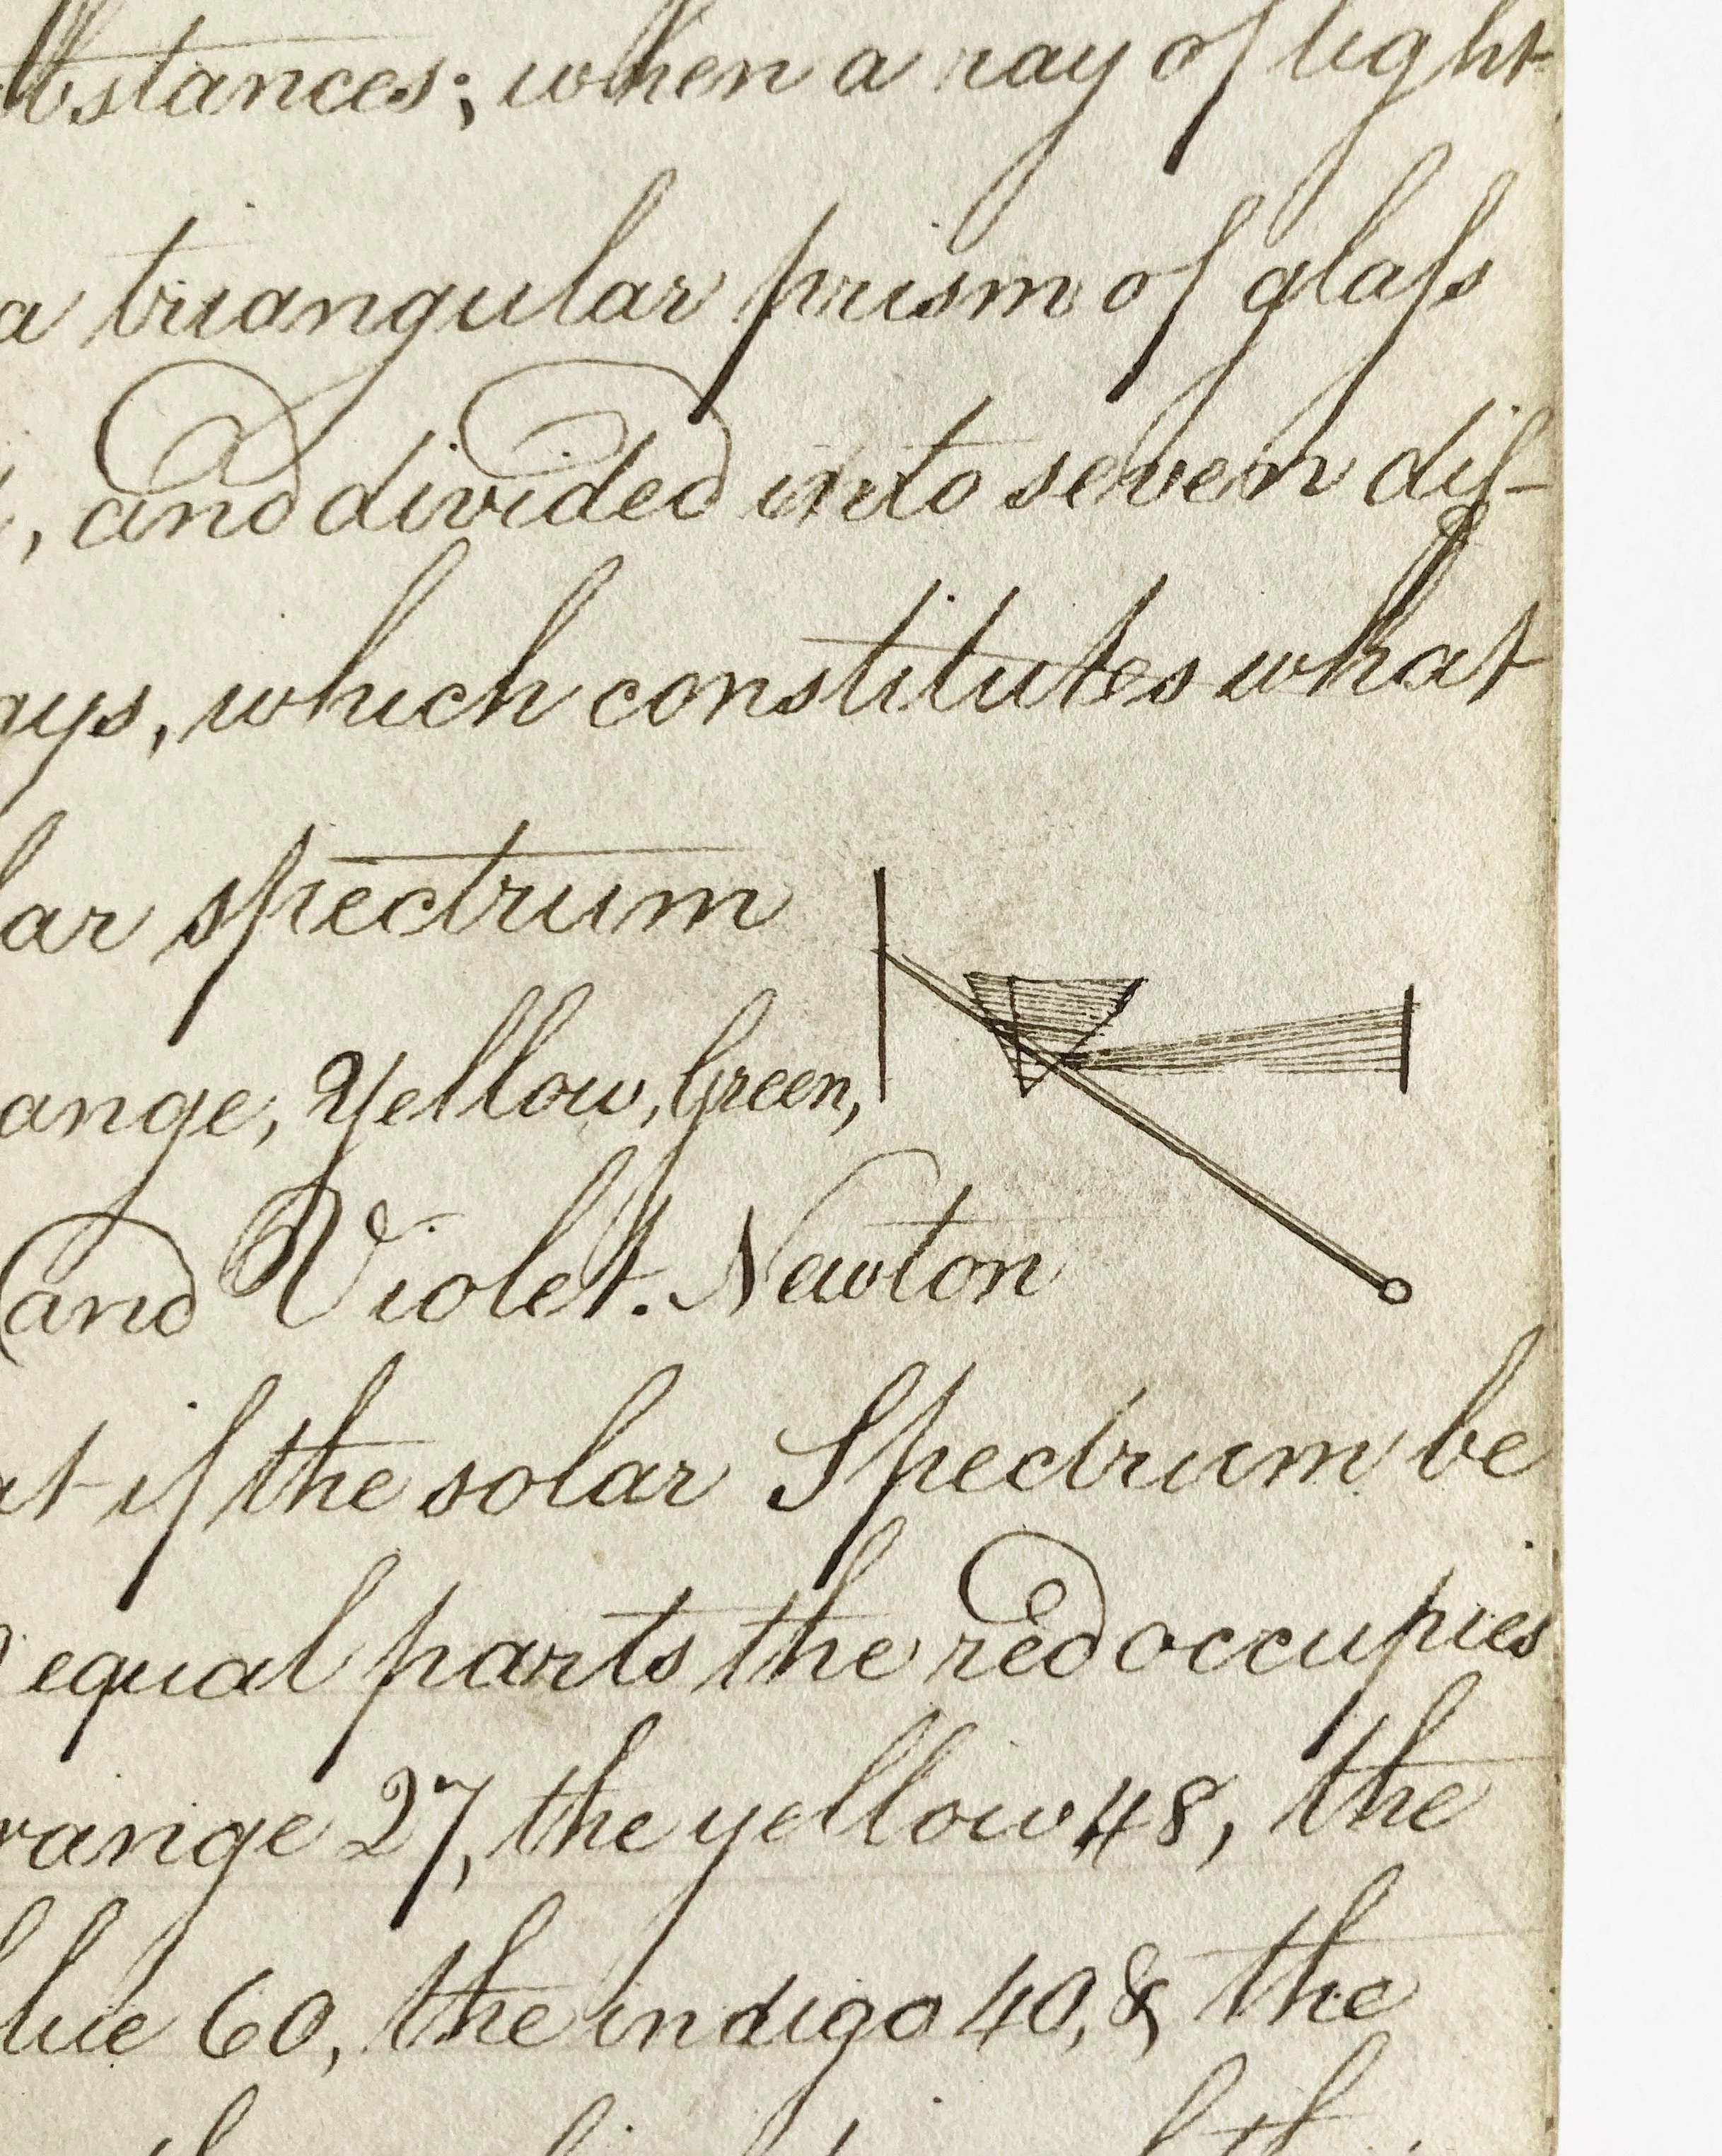 bstances; when a ray of light
a triangular prism of glaſs
, and divided into seven dif-
ays, which constitutes what
lar spectrum
ange, Yellow, Green,
and Violet. Newton
at if the solar Spectrum be
equal parts the red occupies
range 27, the yellow 48, the
lue 60, the indigo 40, & the